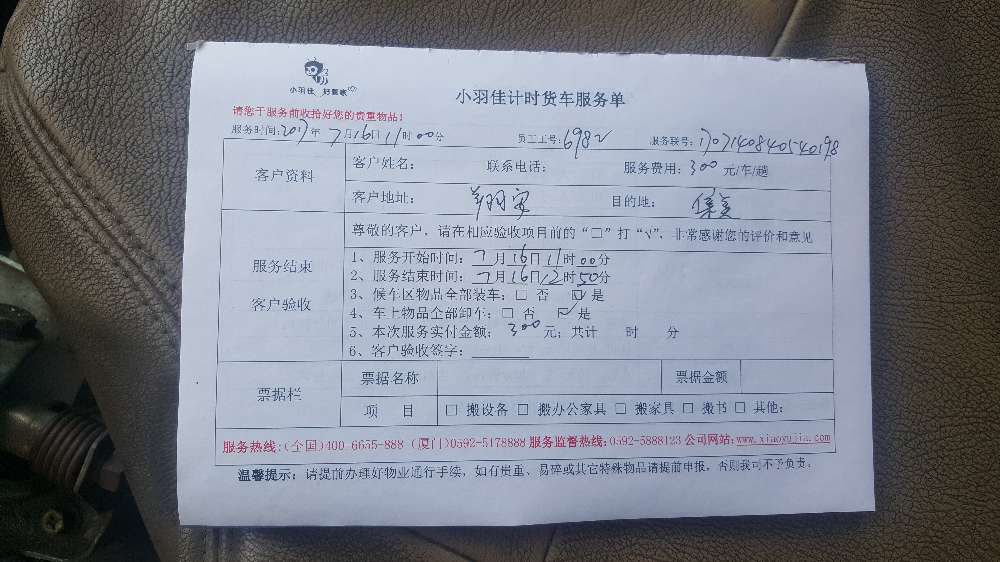 小羽佳 好管家
小羽佳计时货车服务单
请您于服务前收拾好您的贵重物品！
服务时间:2017年7月16日11时00分 员工工号:6982 服务联号:1707140840540198
客户资料
客户姓名： 联系电话： 服务费用：300元/车/趟
客户地址：翔安 目的地：集美
服务结束
客户验收
尊敬的客户，请在相应验收项目前的“□”打“√”，非常感谢您的评价和意见
1、服务开始时间：7月16日11时00分
2、服务结束时间：7月16日12时50分
3、候车区物品全部装车：□ 否 ☑ 是
4、车上物品全部卸车：□ 否 ☑ 是
5、本次服务实付金额：300元；共计 时 分
6、客户验收签字：
票据栏
票据名称 票据金额
项 目 □ 搬设备 □ 搬办公家具 □ 搬家具 □ 搬书 □ 其他：
服务热线:(全国)400-6655-888 (厦门)0592-5178888 服务监督热线:0592-5888123 公司网站:www.xiaoyujia.com
温馨提示：请提前办理好物业通行手续，如有贵重、易碎或其它特殊物品请提前申报，否则我司不予负责。